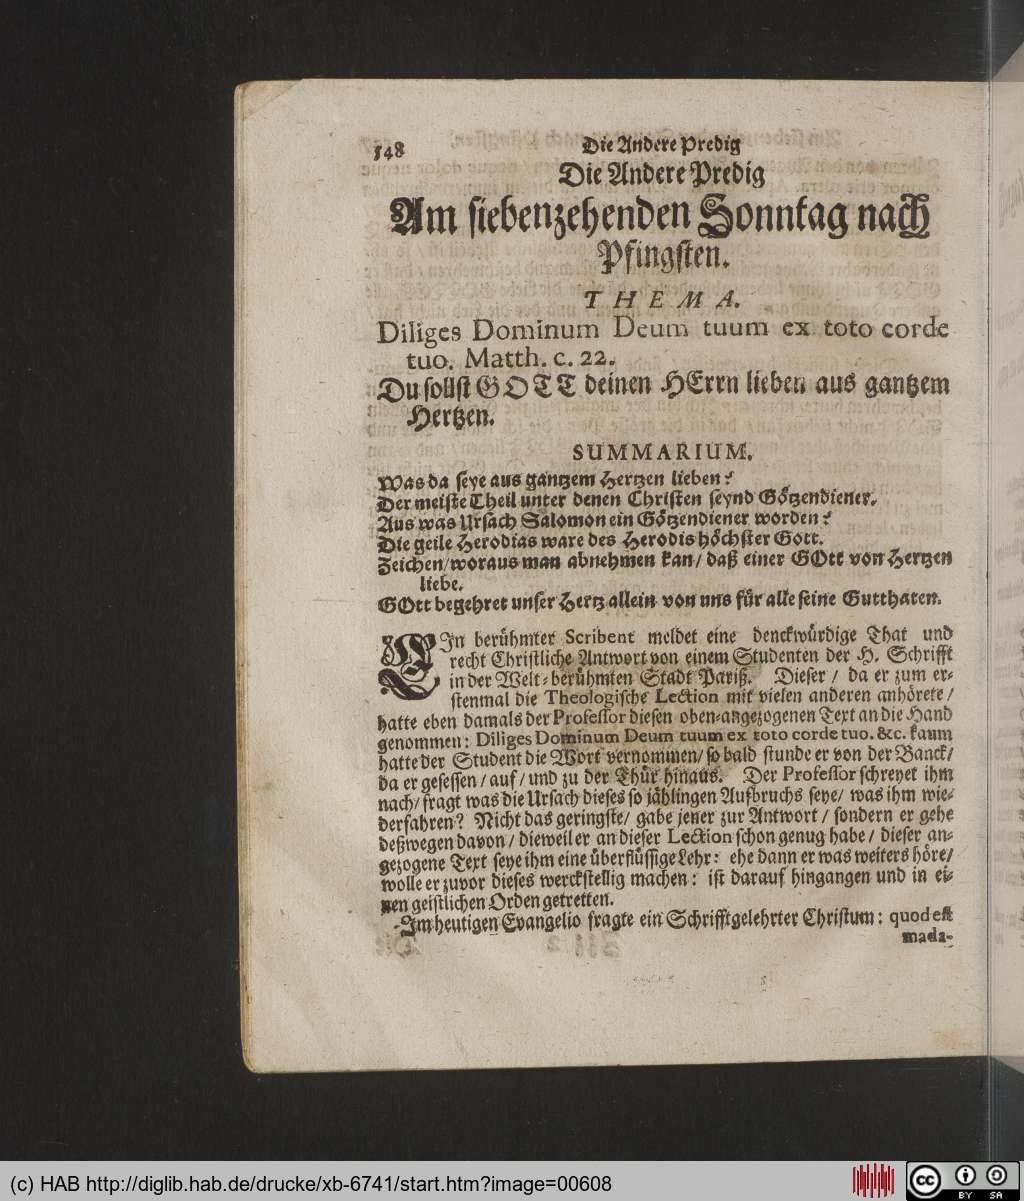 548 Die Andere Predig
Die Andere Predig
Am siebenzehenden Sonntag nach
Pfingsten.
THEMA.
Diliges Dominum Deum tuum ex toto corde
tuo. Matth. c. 22.
Du sollst GOTT deinen HErrn lieben aus gantzem
Hertzen.
SUMMARIUM.
Was da seye aus gantzem Hertzen lieben?
Der meiste Theil unter denen Christen seynd Götzendiener.
Aus was Ursach Salomon ein Götzendiener worden?
Die geile Herodias ware des Herodis höchster Gott.
Zeichen/woraus man abnehmen kan/ daß einer GOtt von Hertzen
liebe.
GOtt begehret unser Hertz allein von uns für alle seine Gutthaten.
EIn berühmter Scribent meldet eine denckwürdige That und
recht Christliche Antwort von einem Studenten der H. Schrifft
in der Welt-berühmten Stadt Pariß. Dieser / da er zum er-
stenmal die Theologische Lection mit vielen anderen anhörete /
hatte eben damals der Professor diesen oben-angezogenen Text an die Hand
genommen: Diliges Dominum Deum tuum ex toto corde tuo. &c. kaum
hatte der Student die Wort vernommen/ so bald stunde er von der Banck/
da er gesessen / auf / und zu der Thür hinaus. Der Professor schreyet ihm
nach/ fragt was die Ursach dieses so jählingen Aufbruchs seye/ was ihm wie-
derfahren? Nicht das geringste/ gabe jener zur Antwort / sondern er gehe
deßwegen davon / dieweil er an dieser Lection schon genug habe / dieser an-
gezogene Text seye ihm eine überflüssige Lehr: ehe dann er was weiters höre/
wolle er zuvor dieses werckstellig machen: ist darauf hingangen und in ei-
nen geistlichen Orden getretten.
Im heutigen Evangelio fragte ein Schrifftgelehrter Christum: quod est
mada-
(c) HAB http://diglib.hab.de/drucke/xb-6741/start.htm?image=00608
cc BY SA